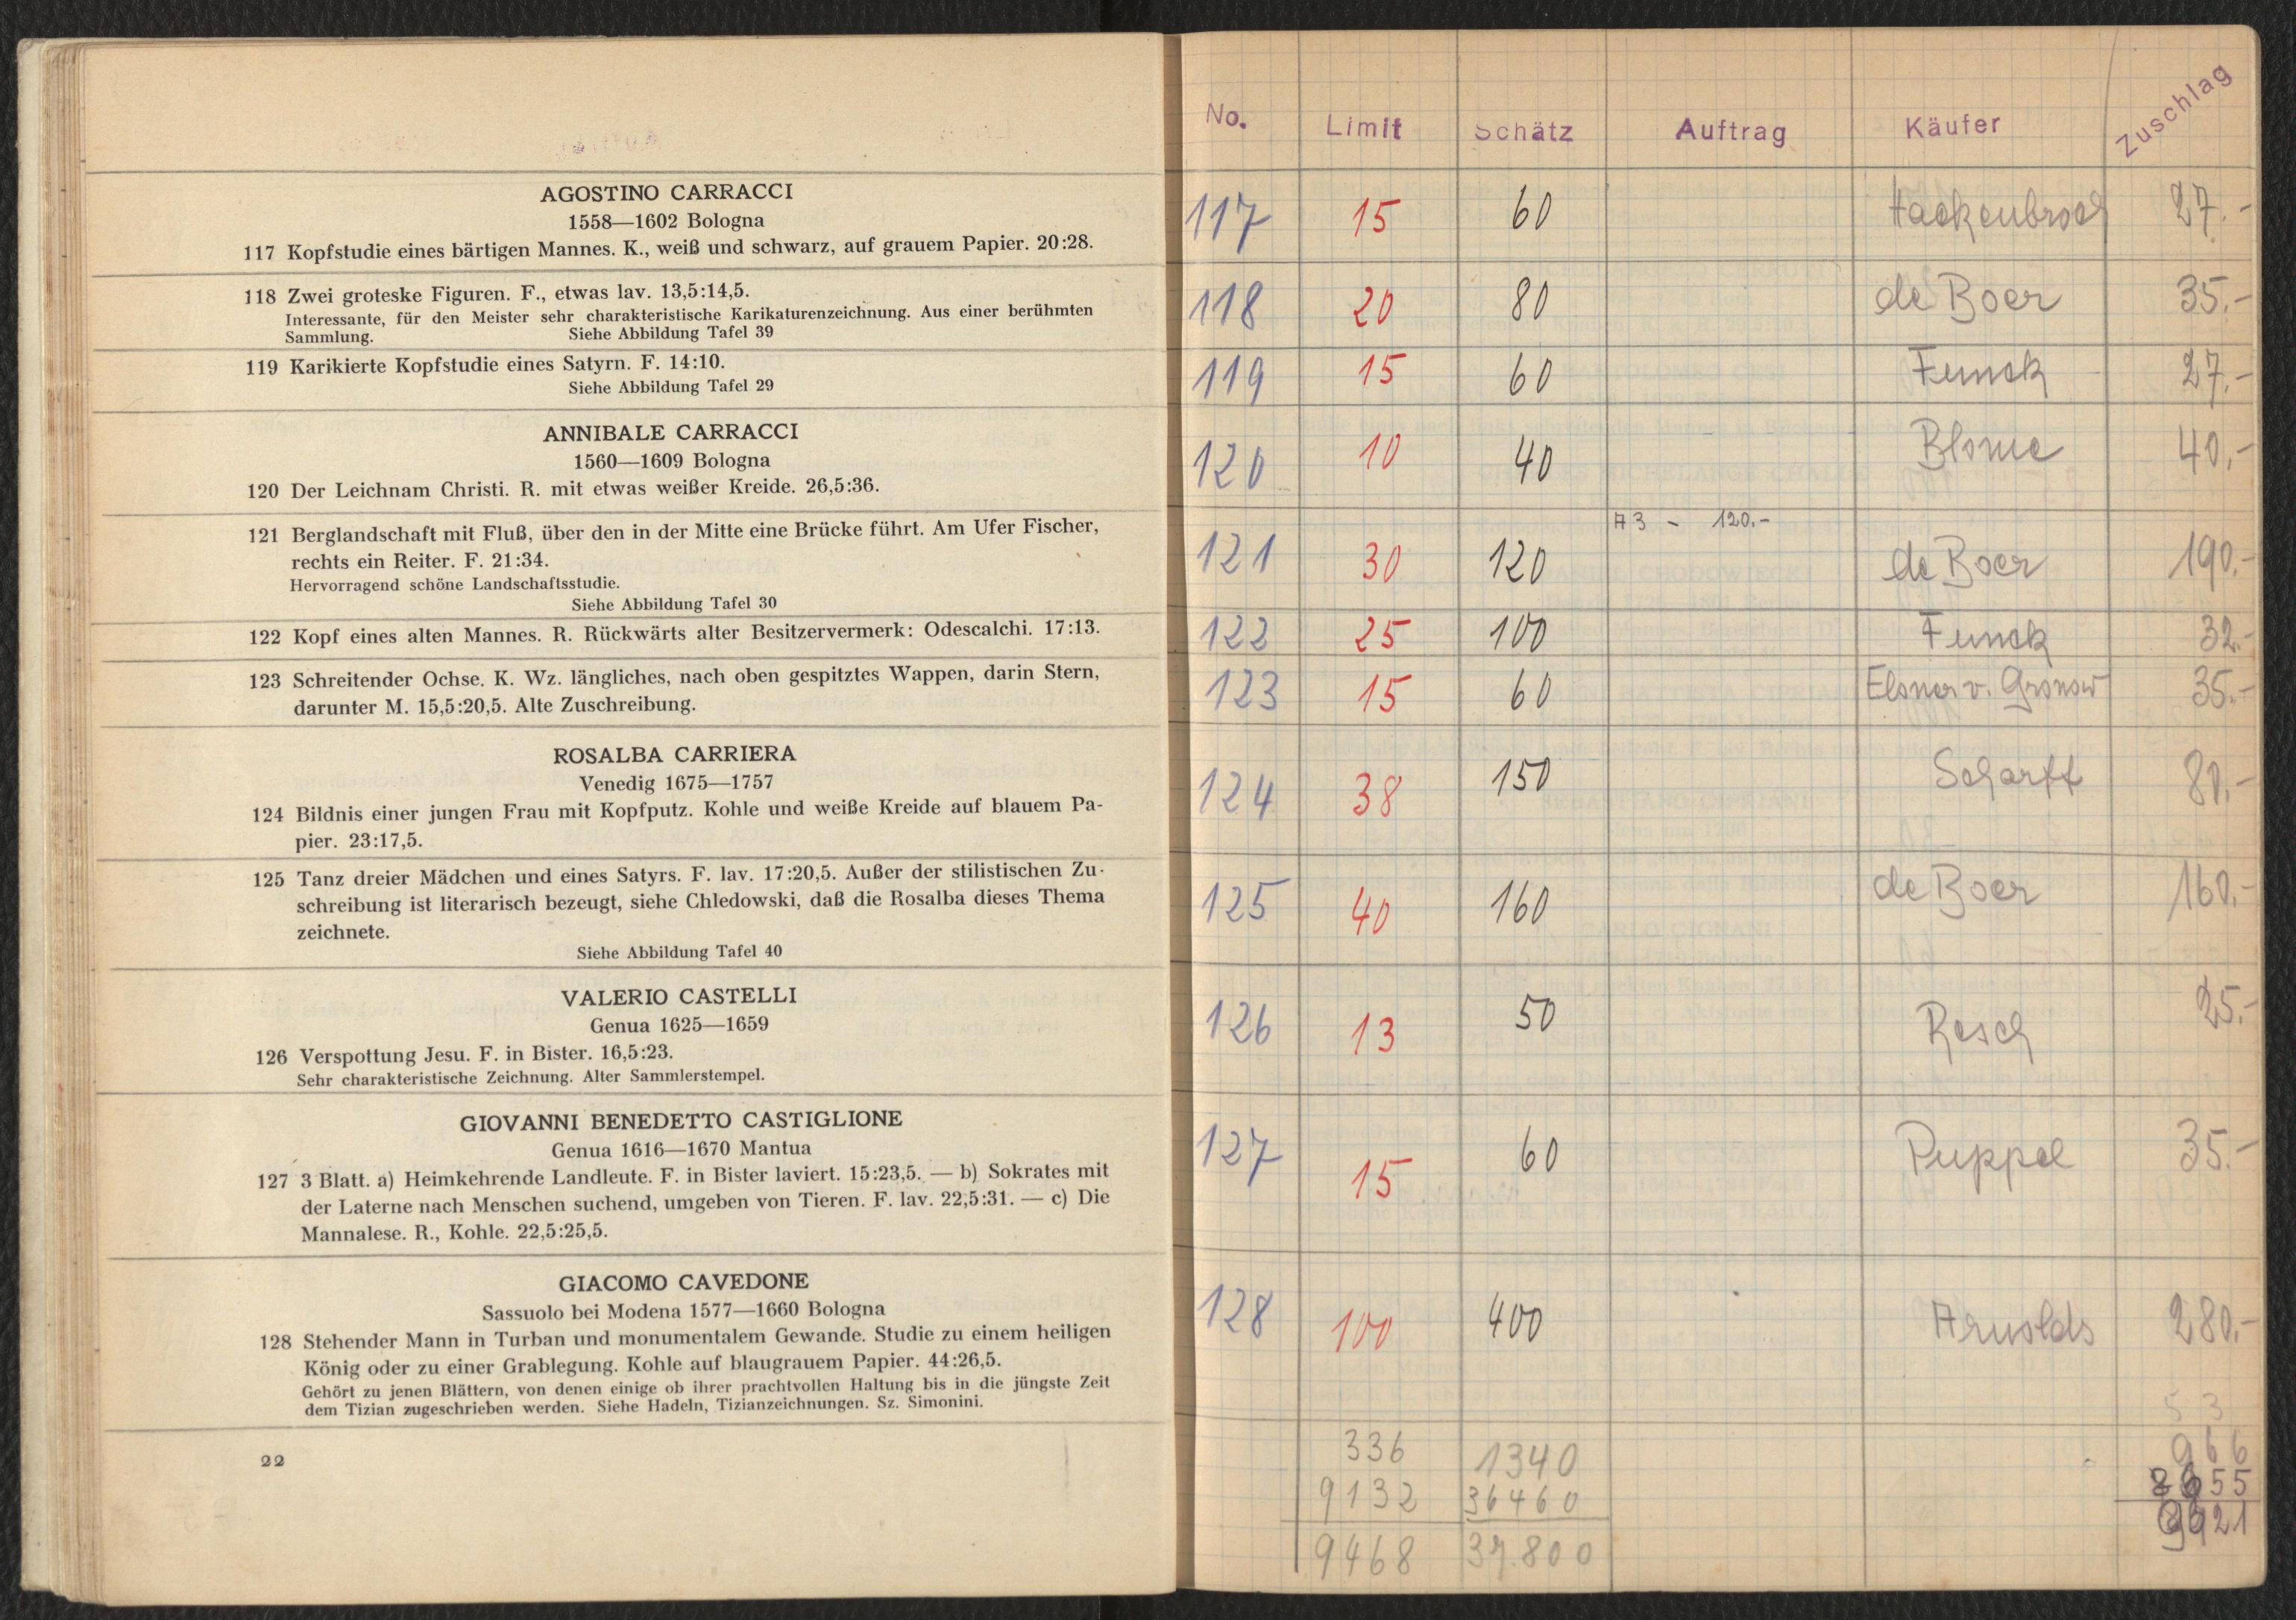 AGOSTINO CARRACCI
1558—1602 Bologna
117 Kopfstudie eines bärtigen Mannes. K., weiß und schwarz, auf grauem Papier. 20:28.
118 Zwei groteske Figuren. F., etwas lav. 13,5:14,5.
Interessante, für den Meister sehr charakteristische Karikaturenzeichnung. Aus einer berühmten
Sammlung. Siehe Abbildung Tafel 39
119 Karikierte Kopfstudie eines Satyrn. F. 14:10.
Siehe Abbildung Tafel 29
ANNIBALE CARRACCI
1560—1609 Bologna
120 Der Leichnam Christi. R. mit etwas weißer Kreide. 26,5:36.
121 Berglandschaft mit Fluß, über den in der Mitte eine Brücke führt. Am Ufer Fischer,
rechts ein Reiter. F. 21:34.
Hervorragend schöne Landschaftsstudie.
Siehe Abbildung Tafel 30
122 Kopf eines alten Mannes. R. Rückwärts alter Besitzervermerk: Odescalchi. 17:13.
123 Schreitender Ochse. K. Wz. längliches, nach oben gespitztes Wappen, darin Stern,
darunter M. 15,5:20,5. Alte Zuschreibung.
ROSALBA CARRIERA
Venedig 1675—1757
124 Bildnis einer jungen Frau mit Kopfputz. Kohle und weiße Kreide auf blauem Pa-
pier. 23:17,5.
125 Tanz dreier Mädchen und eines Satyrs. F. lav. 17:20,5. Außer der stilistischen Zu-
schreibung ist literarisch bezeugt, siehe Chledowski, daß die Rosalba dieses Thema
zeichnete.
Siehe Abbildung Tafel 40
VALERIO CASTELLI
Genua 1625—1659
126 Verspottung Jesu. F. in Bister. 16,5:23.
Sehr charakteristische Zeichnung. Alter Sammlerstempel.
GIOVANNI BENEDETTO CASTIGLIONE
Genua 1616—1670 Mantua
127 3 Blatt. a) Heimkehrende Landleute. F. in Bister laviert. 15:23,5. — b) Sokrates mit
der Laterne nach Menschen suchend, umgeben von Tieren. F. lav. 22,5:31. — c) Die
Mannalese. R., Kohle. 22,5:25,5.
GIACOMO CAVEDONE
Sassuolo bei Modena 1577—1660 Bologna
128 Stehender Mann in Turban und monumentalem Gewande. Studie zu einem heiligen
König oder zu einer Grablegung. Kohle auf blaugrauem Papier. 44:26,5.
Gehört zu jenen Blättern, von denen einige ob ihrer prachtvollen Haltung bis in die jüngste Zeit
dem Tizian zugeschrieben werden. Siehe Hadeln, Tizianzeichnungen. Sz. Simonini.
22
No. Limit Schätz Auftrag Käufer Zuschlag
117 15 60 Hackenbroch 27.-
118 20 80 de Boer 35.-
119 15 60 Funck 27.-
120 10 40 Blome 40.-
A3 - 120.-
121 30 120 de Boer 190.-
122 25 100 Funck 32.-
123 15 60 Elsner v. Gronow 35.-
124 38 150 Scharff 80.-
125 40 160 de Boer 160.-
126 13 50 Resch 25.-
127 15 60 Puppel 35.-
128 100 400 Arnolds 280.-
53
336 1340 966
9132 36460
9468 37.800